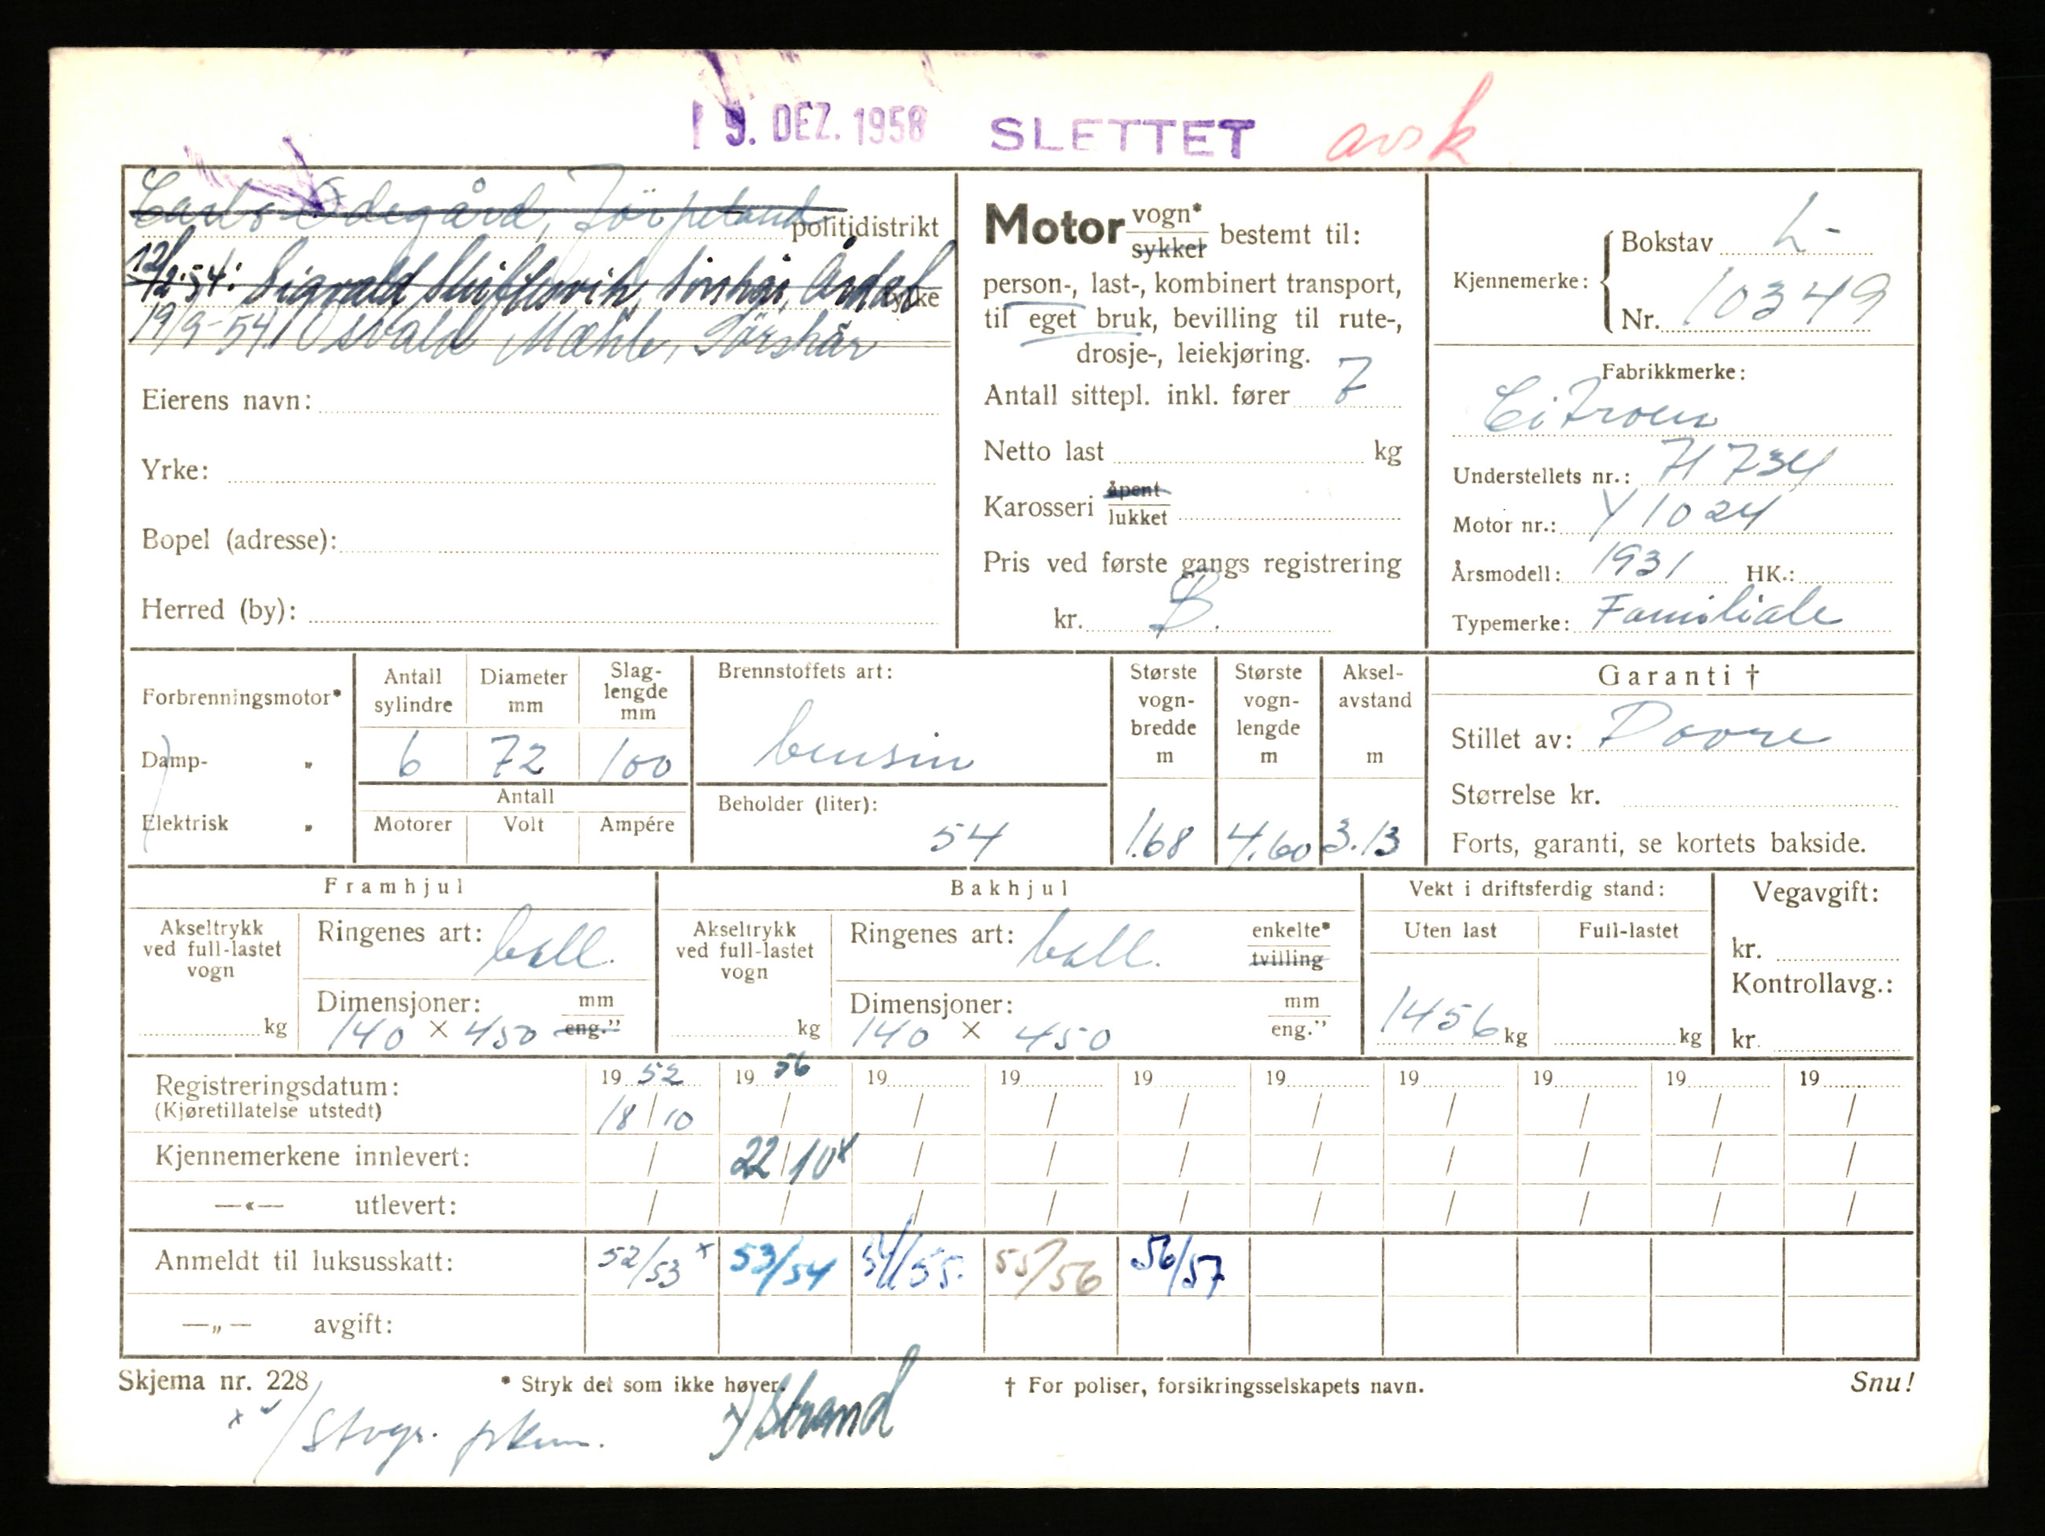 19. DEZ. 1958 SLETTET avsk
Carlo Ødegård, Jörpeland politidistrikt
12/2-54: Sigvald Skiftesvik, Sørskår, Årdal fylke
19/9-54 Osvald Mæhle, Sørskår
Eierens navn:
Yrke:
Bopel (adresse):
Herred (by):
Motor vogn* sykkel bestemt til:
person-, last-, kombinert transport,
til eget bruk, bevilling til rute-,
drosje-, leiekjøring.
Antall sittepl. inkl. fører 7
Netto last kg
Karosseri åpent lukket
Pris ved første gangs registrering
kr. B.
Kjennemerke: Bokstav L-
Nr. 10349
Fabrikkmerke:
Citroen
Understellets nr.: 71734
Motor nr.: Y1024
Årsmodell: 1931 HK.:
Typemerke: Familiale
Forbrenningsmotor*
Damp- „
Elektrisk „
Antall sylindre Diameter mm Slag-lengde mm
6 72 100
Antall
Motorer Volt Ampére
Brennstoffets art:
bensin
Beholder (liter):
54
Største vogn-bredde m Største vogn-lengde m Aksel-avstand m
1.68 4.60 3.13
Garanti †
Stillet av: Dovre
Størrelse kr.
Forts, garanti, se kortets bakside.
Framhjul
Akseltrykk ved full-lastet vogn
kg
Ringenes art: ball.
Dimensjoner: mm eng.”
140 × 450
Bakhjul
Akseltrykk ved full-lastet vogn
kg
Ringenes art: ball. enkelte* tvilling
Dimensjoner: mm eng.”
140 × 450
Vekt i driftsferdig stand:
Uten last Full-lastet
1456 kg kg
Vegavgift:
kr.
Kontrollavg.:
kr.
Registreringsdatum: 19 52 19 56 19 19 19 19 19 19 19 19
(Kjøretillatelse utstedt) 18/10 / / / / / / / / /
Kjennemerkene innlevert: / 22/10 x / / / / / / / /
—«— utlevert: / / / / / / / / / /
Anmeldt til luksusskatt: 52/53 x 53/54 54/55. 55/56 56/57
—„— avgift:
Skjema nr. 228 * Stryk det som ikke høver. † For poliser, forsikringsselskapets navn. Snu!
x) Strand